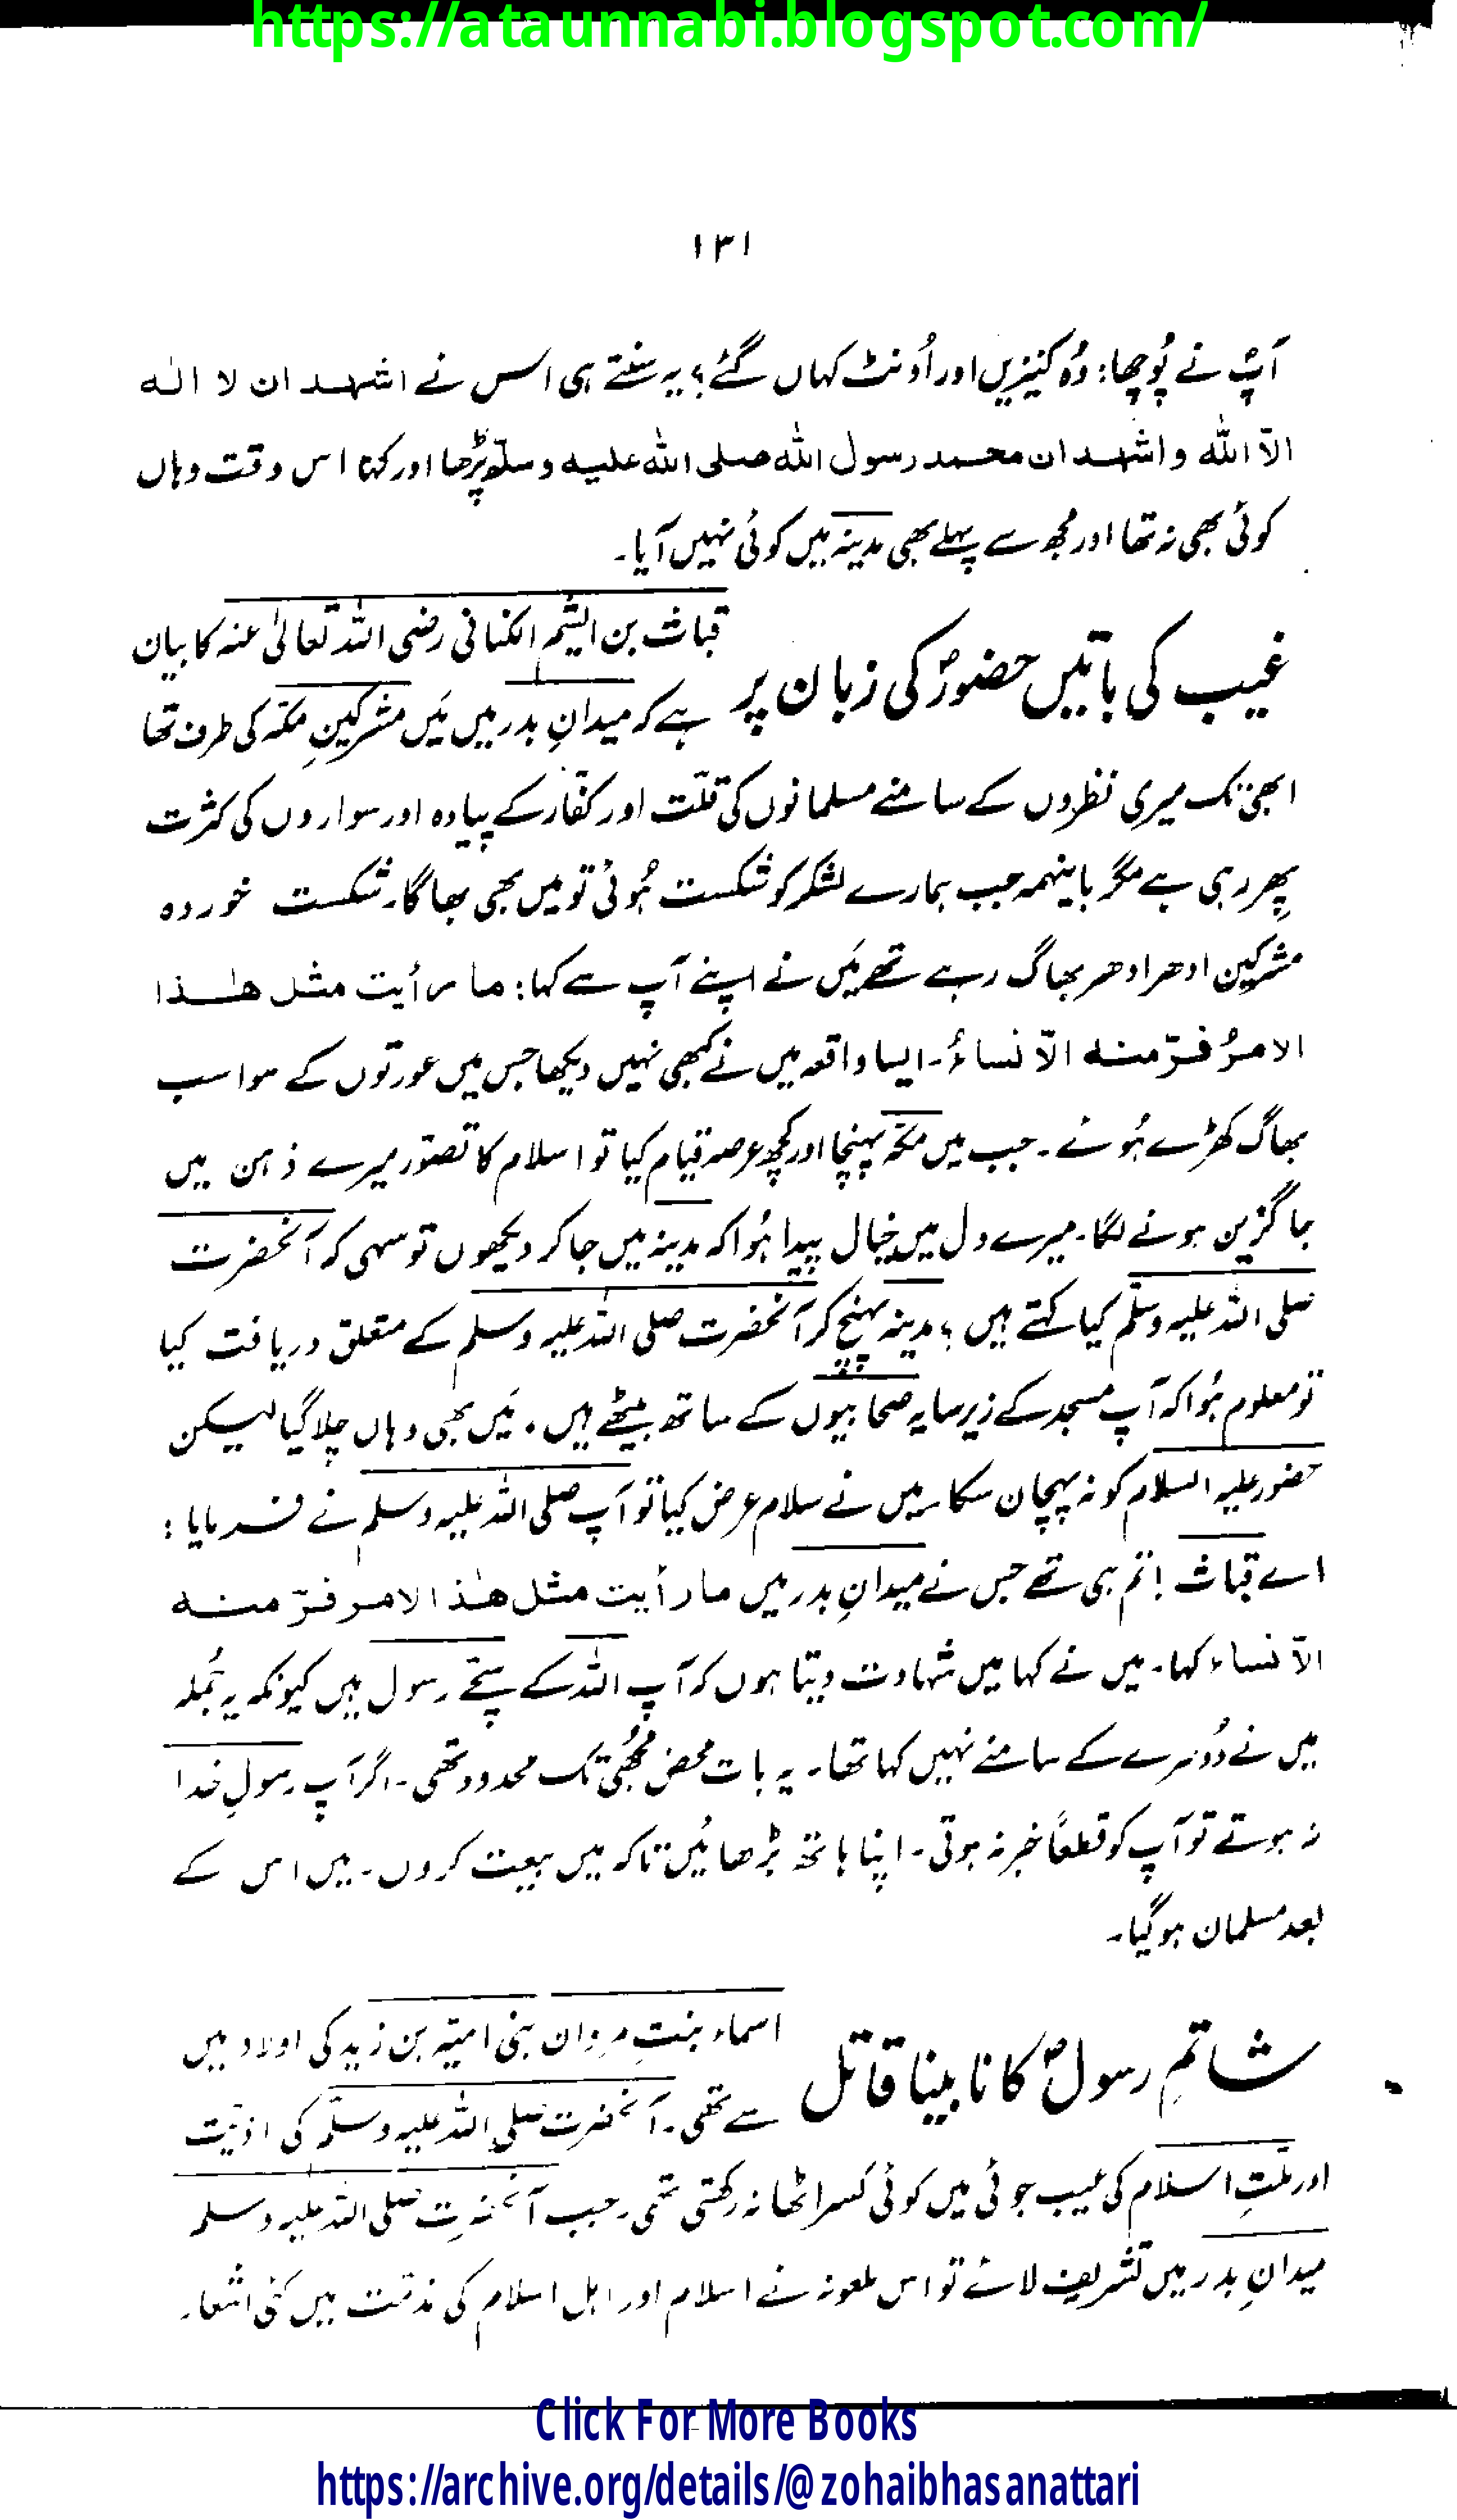 https://ataunnabi.blogspot.com/
۱۳۱
آپؐ نے پُوچھا: وُہ کنیزیں اور اُونٹ کہاں گئے؟ یہ سنتے ہی اس نے اشہد ان لا الٰہ
الّا اللہ واشہد ان محمد رسول اللہ صلی اللہ علیہ وسلّم پڑھا اور کہا اس وقت وہاں
کوئی بھی نہ تھا اور مجھ سے پہلے بھی مدینہ میں کوئی نہیں آیا۔
غیب کی باتیں حضورؐ کی زبان پر
قباث بن الیثم الکنانی رضی اللہ تعالیٰ عنہ کا بیان
ہے کہ میدانِ بدر میں مَیں مشرکینِ مکّہ کی طرف تھا
ابھی تک میری نظروں کے سامنے مسلمانوں کی قلّت اور کفّار کے پیادہ اور سواروں کی کثرت
پِھر رہی ہے مگر باینہمہ جب ہمارے لشکر کو شکست ہُوئی تو میں بھی بھاگا۔ شکست خوردہ
مشرکین ادھر ادھر بھاگ رہے تھے مَیں نے اپنے آپ سے کہا: ما رأیت مثل ھٰذا
الامرُ فرّ منہ الّا نساءُ۔ ایسا واقعہ میں نے کبھی نہیں دیکھا جس میں عورتوں کے سوا سب
بھاگ کھڑے ہُوئے۔ جب میں مکّہ پہنچا اور کچھ عرصہ قیام کیا تو اسلام کا تصوّر میرے ذہن میں
جاگزین ہونے لگا۔ میرے دل میں خیال پیدا ہُوا کہ مدینہ میں جا کر دیکھوں تو سہی کہ آنحضرت
صلی اللہ علیہ وسلّم کیا کہتے ہیں؟ مدینہ پہنچ کر آنحضرت صلی اللہ علیہ وسلم کے متعلق دریافت کیا
تو معلوم ہُوا کہ آپ مسجد کے زیرِ سایہ صحابیوں کے ساتھ بیٹھے ہیں۔ مَیں بھی وہاں چلا گیا لیکن
حضور علیہ السلام کو نہ پہچان سکا۔ میں نے سلام عرض کیا تو آپ صلی اللہ علیہ وسلم نے فرمایا:
اے قباث! تم ہی تھے جس نے میدانِ بدر میں ما رأیت مثل ھٰذا الامر فرّ منہ
الّا نساء کہا۔ میں نے کہا میں شہادت دیتا ہوں کہ آپ اللہ کے سچّے رسول ہیں کیونکہ یہ جُملہ
میں نے دُوسرے کے سامنے نہیں کہا تھا۔ یہ بات محض مجھُی تک محدود تھی۔ اگر آپ رسولِ خدا
نہ ہوتے تو آپ کو قطعاً خبر نہ ہوتی۔ اپنا ہاتھ بڑھائیں تاکہ میں بیعت کروں۔ میں اس کے
بعد مسلمان ہو گیا۔
شاتمِ رسولؐ کا نابینا قاتل
اسماء بنتِ مروان بنی امیّہ بن زید کی اولاد میں
سے تھی۔ آنحضرت صلی اللہ علیہ وسلّم کی اذیّت
اور ملّتِ اسلام کی عیب جوئی میں کوئی کسر اٹھا نہ رکھتی تھی۔ جب آنحضرت صلی اللہ علیہ وسلم
میدانِ بدر میں تشریف لائے تو اس ملعونہ نے اسلام اور اہلِ اسلام کی مذمّت میں کئی اشعار
Click For More Books
https://archive.org/details/@zohaibhasanattari